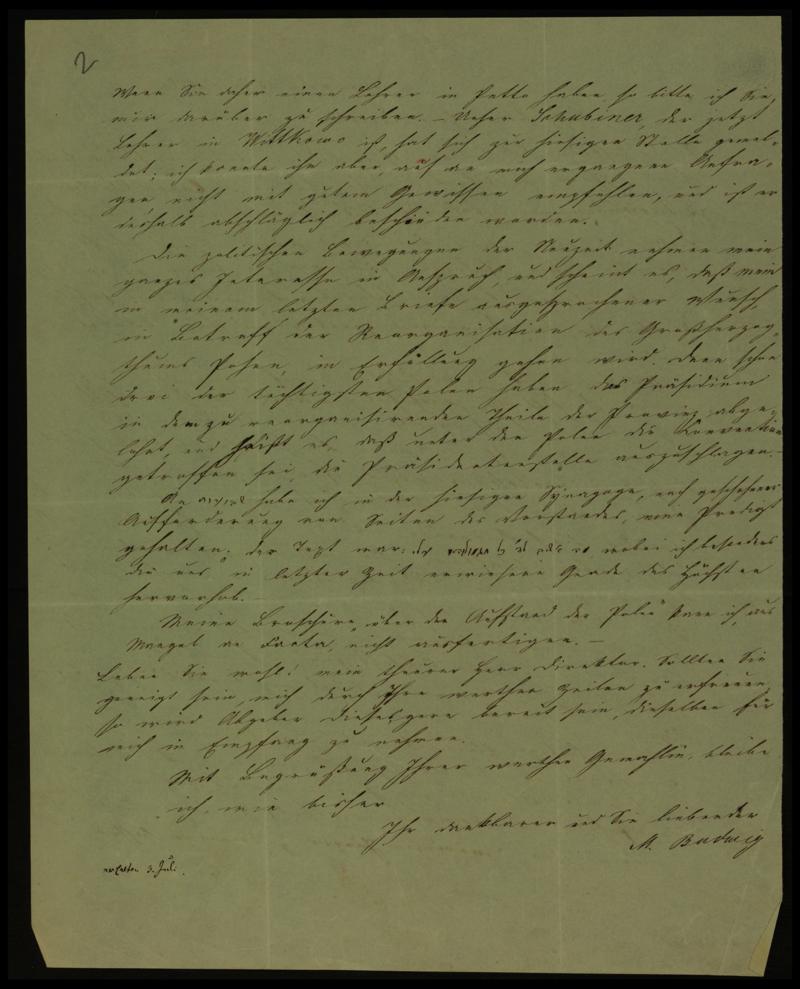 2
Wenn Sie daher einen Lehrer in Petto haben, so bitte ich Sie,
mir darüber zu schreiben. – Ueber Schubiner, der jetzt
Lehrer in Wittkowo ist, hat sich zur hiesigen Stelle gemel-
det; ich konnte ihn aber, auf an mich ergangene Anfra-
gen nicht mit gutem Gewissen empfehlen, und ist er
deshalb abschläglich beschieden worden.
Die politischen Bewegungen der Neuzeit nehmen mein
ganzes Interesse in Anspruch, und scheint es, daß mein
in meinem letzten Briefe ausgesprochener Wunsch,
in Betreff der Reorganisation des Großherzog-
thums Posen, in Erfüllung gehen wird, denn schon
drei der tüchtigsten Polen haben das Präsidium
in dem zu reorganisirenden Theile der Provinz abge-
lehnt, und heißt es, daß unter den Polen die Convention
getroffen sei, die Präsidentenstelle auszuschlagen. –
An habe ich in der hiesigen Synagoge, nach geschehener
Aufforderung von Seiten des Vorstandes, eine Predigt
gehalten; der Text war: wobei ich besonders
die uns in letzter Zeit erwiesene Gnade des Höchsten
hervorhob. –
Meine Broschüre „über den Aufstand der Polen" kann ich, aus
Mangel an Facta, nicht ausfertigen. –
Leben Sie wohl! mein theurer Herr Direktor. Sollten Sie
geneigt sein, mich durch Ihre werthen Zeilen zu erfreuen,
so wird Abgeber dieses gern bereit sein, dieselben für
mich in Empfang zu nehmen.
Mit Begrüßung Ihrer werthen Gemahlin, bleibe
ich, wie bisher
Ihr dankbarer und Sie liebender
M.
erhalten 3. Juli.